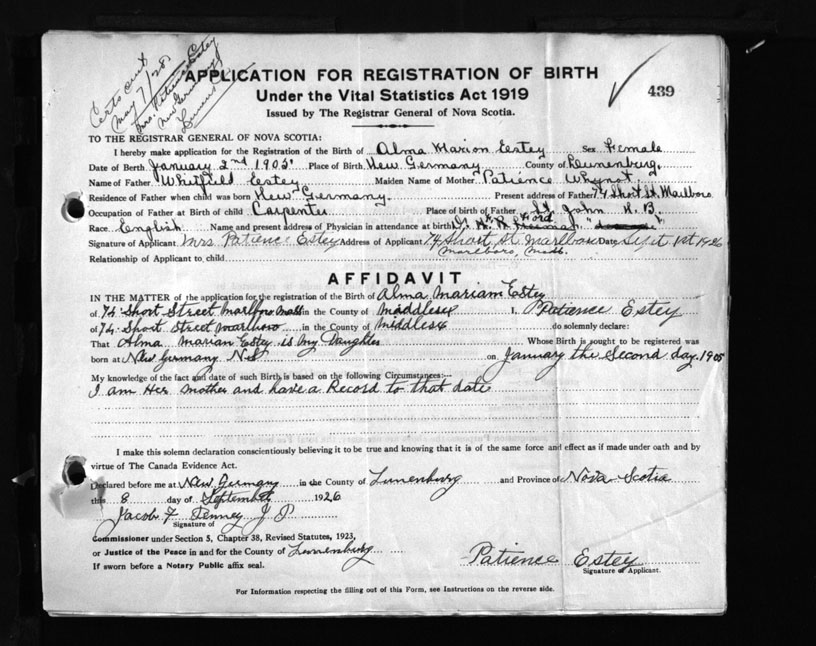 Certs sent
May 7/28
Mrs Patience Estey
New Germany
APPLICATION FOR REGISTRATION OF BIRTH
439
Under the Vital Statistics Act 1919
Issued by The Registrar General of Nova Scotia.
TO THE REGISTRAR GENERAL OF NOVA SCOTIA:
I hereby make application for the Registration of the Birth of Alma Marion Estey Sex Female
Date of Berth January 2nd 1905 Place of Birth New Germany County of Lunenburg.
Name of Father Whitfield Estey Maiden Name of Mother Patience Whynot
Residence of Father when child was born New Germany. Present address of Father 74 Short St. Marlboro
Occupation of Father at Birth of child Carpenter Place of birth of Father St John N.B.
Race English Name and present address of Physician in attendance at birth
Signature of Applicant Mrs Patience Estey Address of Applicant 74 Short St. Marlboro Date Sept 1st 1926
Marlboro, Mass.
Relationship of Applicant to child
AFFIDAVIT
IN THE MATTER of the application for the registration of the Birth of Alma Mariam Estey
of 74 Short Street Marlboro Mass in the County of Middlesex I, Patience Estey
of 74 Short Street Marlboro in the County of Middlesex do solemnly declare:
That Alma Marian Estey is my Daughter Whose Birth is sought to be registered was
born at New Germany N.S on January the Second day 1905
My knowledge of the fact and date of such Birth is based on the following Circumstances:—
I am Her mother and have a Record to that date
I make this solemn declaration conscientiously believing it to be true and knowing that it is of the same force and effect as if made under oath and by
virtue of The Canada Evidence Act.
Declared before me at New Germany in the County of Lunenburg and Province of Nova Scotia
this 8 day of September 1926
Jacob F Penney J P
Signature of
Commissioner under Section 5, Chapter 38, Revised Statutes, 1923,
or Justice of the Peace in and for the County of Lunenburg
If sworn before a Notary Public affix seal.
Patience Estey
Signature of Applicant.
For Information respecting the filling out of this Form, see Instructions on the reverse side.